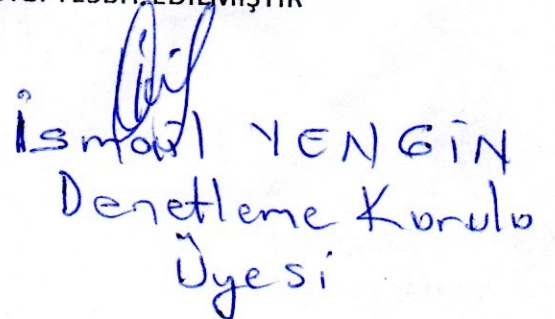 EDİLMİŞTİR
İsmail YENGİN
Denetleme Kurulu
Üyesi